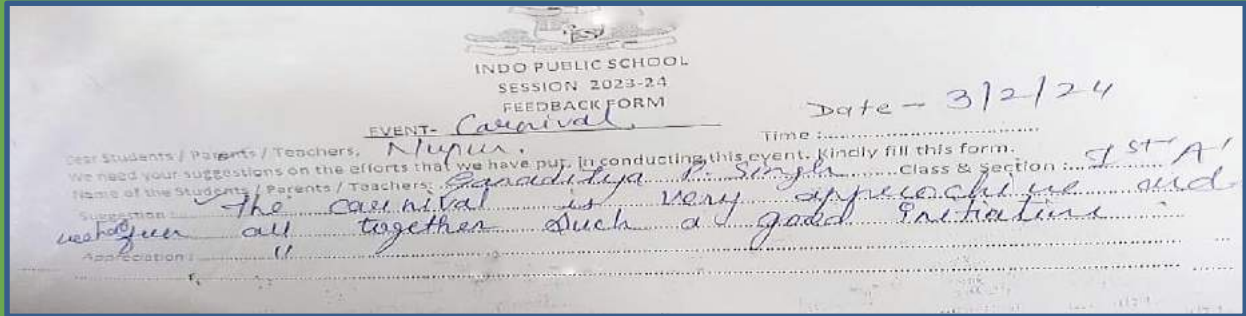 INDO PUBLIC SCHOOL
SESSION 2023-24
FEEDBACK FORM
Date - 3/2/24
EVENT- Carnival
Time :
Dear Students / Parents / Teachers, Nupur.
We need your suggestions on the efforts that we have put, in conducting this event. Kindly fill this form.
Name of the Students / Parents / Teachers: P. Singh Class & Section : 1st 'A'
Suggestion : The carnival is very and
fun all together such a good
Appreciation : "